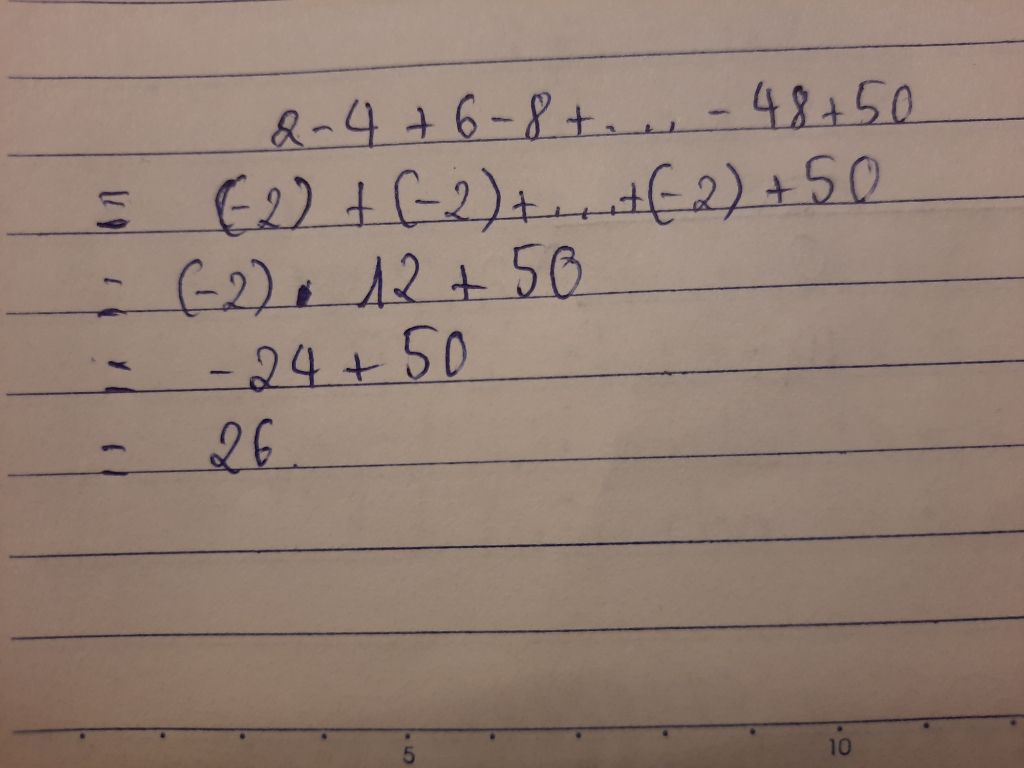 2 - 4 + 6 - 8 + .... - 48 + 50
= (-2) + (-2) + .... + (-2) + 50
= (-2) · 12 + 50
= -24 + 50
= 26.
5 10